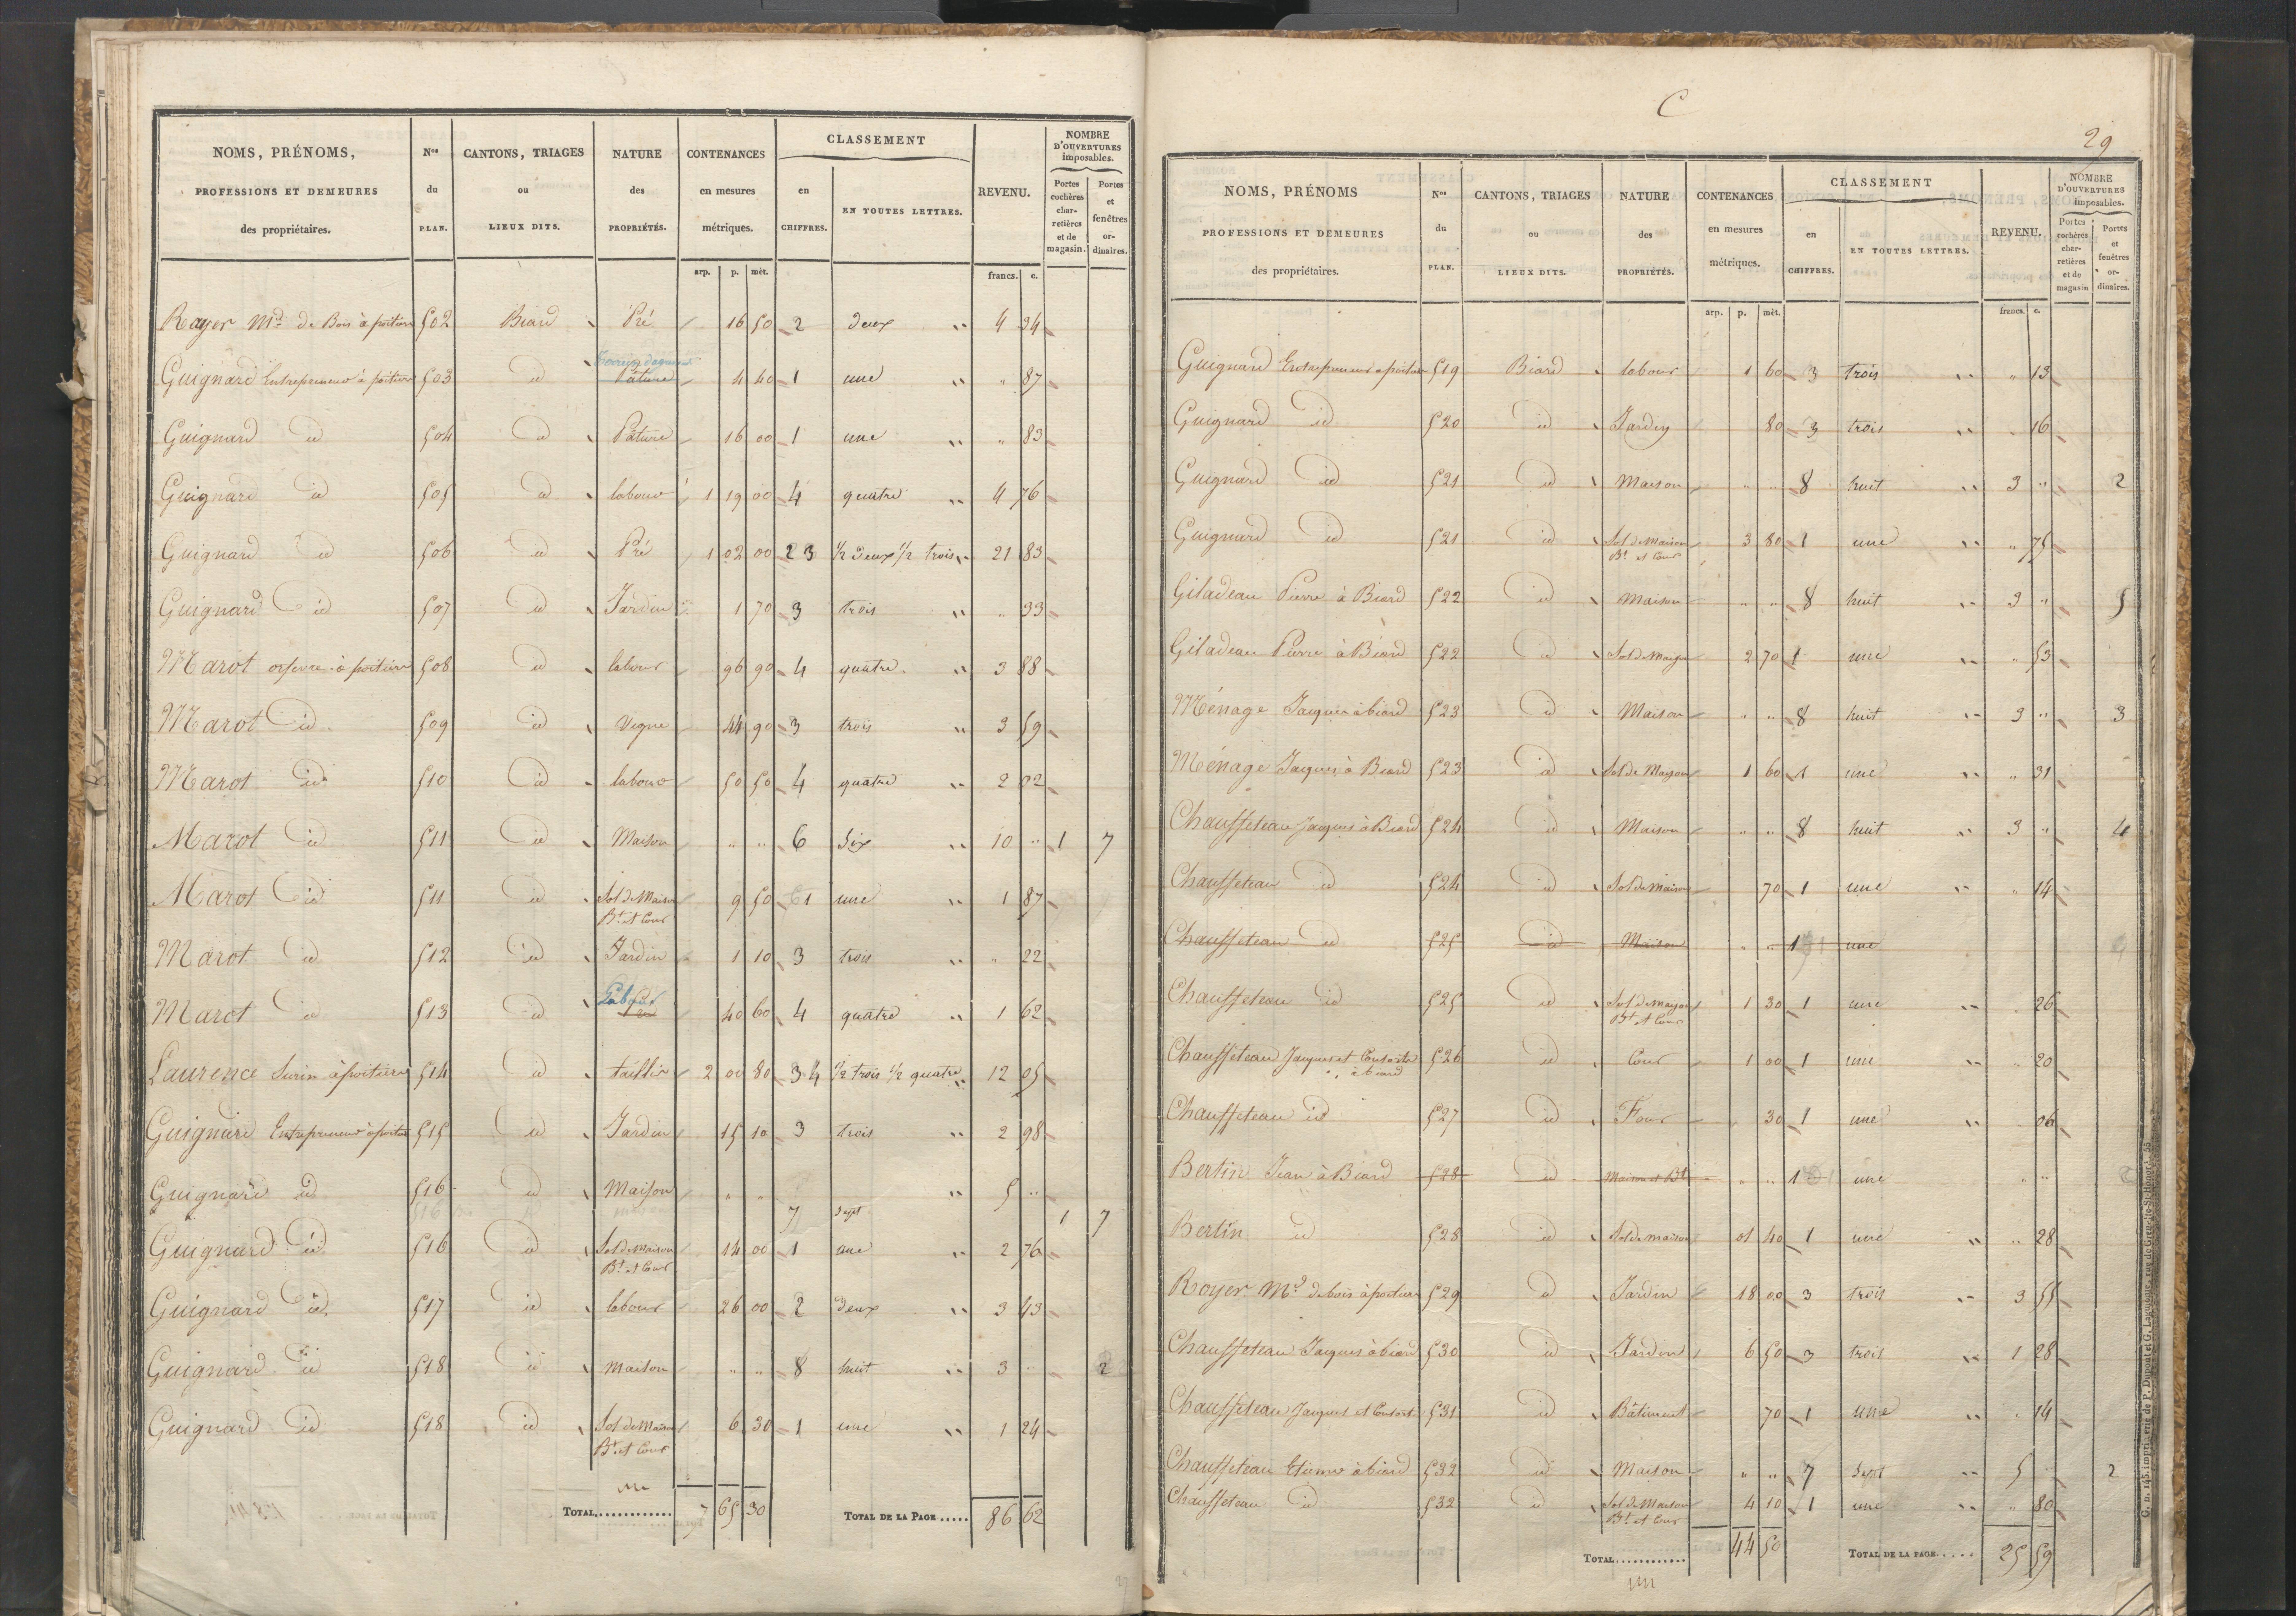 NOMS, PRÉNOMS, PROFESSIONS ET DEMEURES des propriétaires. Nos du PLAN. CANTONS, TRIAGES ou LIEUX DITS. NATURE des PROPRIÉTÉS. CONTENANCES en mesures métriques. CLASSEMENT en CHIFFRES. EN TOUTES LETTRES. REVENU. NOMBRE D'OUVERTURES imposables. Portes cochères charretières et de magasin. Portes et fenêtres ordinaires.
arp. p. mèt. francs. c.
Royer Md de Bois à poitiers 502 Biard Pré 16 50 2 deux 4 34
Guignard Entrepreneur à poitiers 503 id Pâture 4 40 1 une " 87
Guignard id 504 id Pâture 16 00 1 une " 83
Guignard id 505 id labour 1 19 00 4 quatre 4 76
Guignard id 506 id Pré 1 02 00 2 3 1/2 deux 1/2 trois 21 83
Guignard id 507 id Jardin 1 70 3 trois " 33
Marot orfevre à poitiers 508 id labour 96 90 4 quatre 3 88
Marot id 509 id Vigne 44 90 3 trois 3 59
Marot id 510 id labour 50 50 4 quatre 2 02
Marot id 511 id Maison " " 6 Six 10 " 1 7
Marot id 511 id Sol de Maison Bt et Cour 9 50 1 une 1 87
Marot id 512 id Jardin 1 10 3 trois " 22
Marot id 513 id Labour 40 60 4 quatre 1 62
Laurence Surin à poitiers 514 id taillis 2 00 80 3 4 1/2 trois 1/2 quatre 12 05
Guignard Entrepreneur à poitiers 515 id Jardin 15 10 3 trois 2 98
Guignard id 516 id Maison " " 7 Sept 5 " 1 7
Guignard id 516 id Sol de Maison Bt et Cour 14 00 1 une 2 76
Guignard id 517 id labour 26 00 2 deux 3 43
Guignard id 518 id Maison " " 8 huit 3 " 2
Guignard id 518 id Sol de Maison Bt et Cour 6 30 1 une 1 24
TOTAL............ 7 65 30 TOTAL DE LA PAGE..... 86 62
C
29
NOMS, PRÉNOMS PROFESSIONS ET DEMEURES des propriétaires. Nos du PLAN. CANTONS, TRIAGES ou LIEUX DITS. NATURE des PROPRIÉTÉS. CONTENANCES en mesures métriques. CLASSEMENT en CHIFFRES. EN TOUTES LETTRES. REVENU. NOMBRE D'OUVERTURES imposables. Portes cochères charretières et de magasin Portes et fenêtres ordinaires.
arp. p. mèt. francs. c.
Guignard Entrepreneur à poitiers 519 Biard labour 1 60 3 trois " 13
Guignard id 520 id Jardin 80 3 trois 16
Guignard id 521 id Maison " " 8 huit 3 " 2
Guignard id 521 id Sol de Maison Bt et Cour 3 80 1 une " 75
Giladeau Pierre à Biard 522 id Maison " " 8 huit 3 " 5
Giladeau Pierre à Biard 522 id Sol de Maison 2 70 1 une " 53
Ménage Jacques à biard 523 id Maison " " 8 huit 3 " 3
Ménage Jacques à Biard 523 id Sol de Maison 1 60 1 une " 31
Chauffeteau Jacques à Biard 524 id Maison " " 8 huit 3 " 4
Chauffeteau id 524 id Sol de Maison 70 1 une " 14
Chauffeteau id 525 id Maison " " 1 une
Chauffeteau id 525 id Sol de Maison Bt et Cour 1 30 1 une 26
Chauffeteau Jacques et Consorts à biard 526 id Cour 1 00 1 une 20
Chauffeteau id 527 id Four 30 1 une 06
Bertin Jean à Biard 528 id Maison et Bt " " 1 une " "
Bertin id 528 id Sol de maison 01 40 1 une " 28
Royer Md de bois à poitiers 529 id Jardin 18 00 3 trois 3 55
Chauffeteau Jacques à biard 530 id Jardin 6 50 3 trois 1 28
Chauffeteau Jacques et Consorts 531 id Bâtiment 70 1 une 14
Chauffeteau Etienne à biard 532 id Maison " " 7 Sept 5 2
Chauffeteau id 532 id Sol de Maison Bt et Cour 4 10 1 une " 80
TOTAL............ 44 50 TOTAL DE LA PAGE..... 25 59